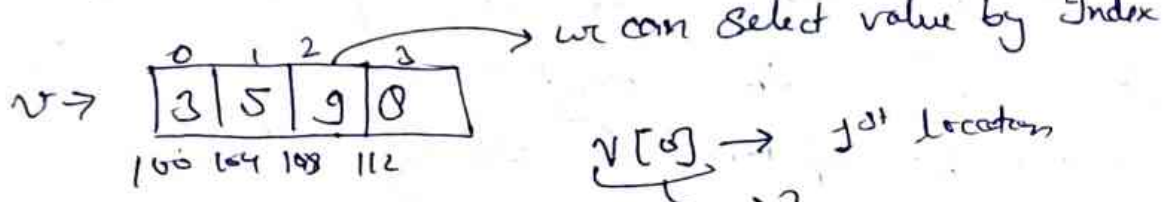 we can select value by Index
0 1 2 3
v→ 3 5 9 8
100 104 108 112
v[0] → 1st location